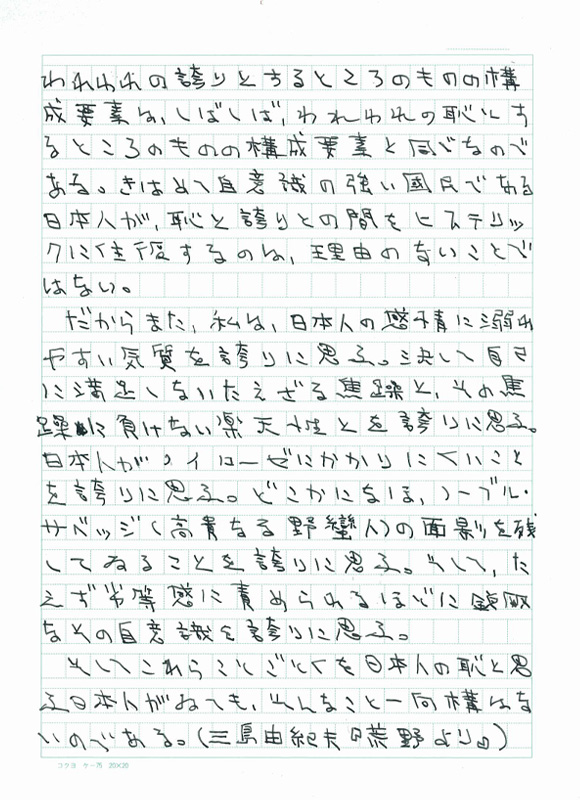 われわれの誇りとするところのものの構
成要素は、しばしば、われわれの恥とす
るところのものの構成要素と同じなので
ある。きはめて自意識の強い國民である
日本人が、恥と誇りとの間をヒステリッ
クに往復するのは、理由のないことで
はない。
だからまた、私は、日本人の感情に溺れ
やすい気質を誇りに思ふ。決して自己
に満足しないたえざる焦躁と、その焦
躁に負けない楽天性とを誇りに思ふ。
日本人がノイローゼにかかりにくいこと
を誇りに思ふ。どこかになほ、ノーブル・
サベッジ(高貴なる野蠻人)の面影を残
してゐることを誇りに思ふ。そして、た
えず劣等感に責められるほどに鋭敏
なその自意識を誇りに思ふ。
そしてこれらことごとくを日本人の恥と思
ふ日本人がゐても、そんなこと一向構はな
いのである。(三島由紀夫『荒野より』)
コクヨ ケ-75 20×20